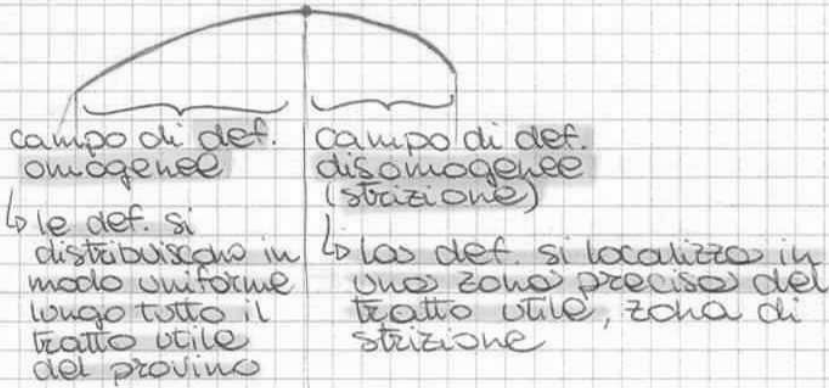 campo di def.
omogenee
↳ le def. si
distribuiscono in
modo uniforme
lungo tutto il
tratto utile
del provino
campo di def.
disomogenee
(strizione)
↳ la def. si localizza in
una zona precisa del
tratto utile, zona di
strizione